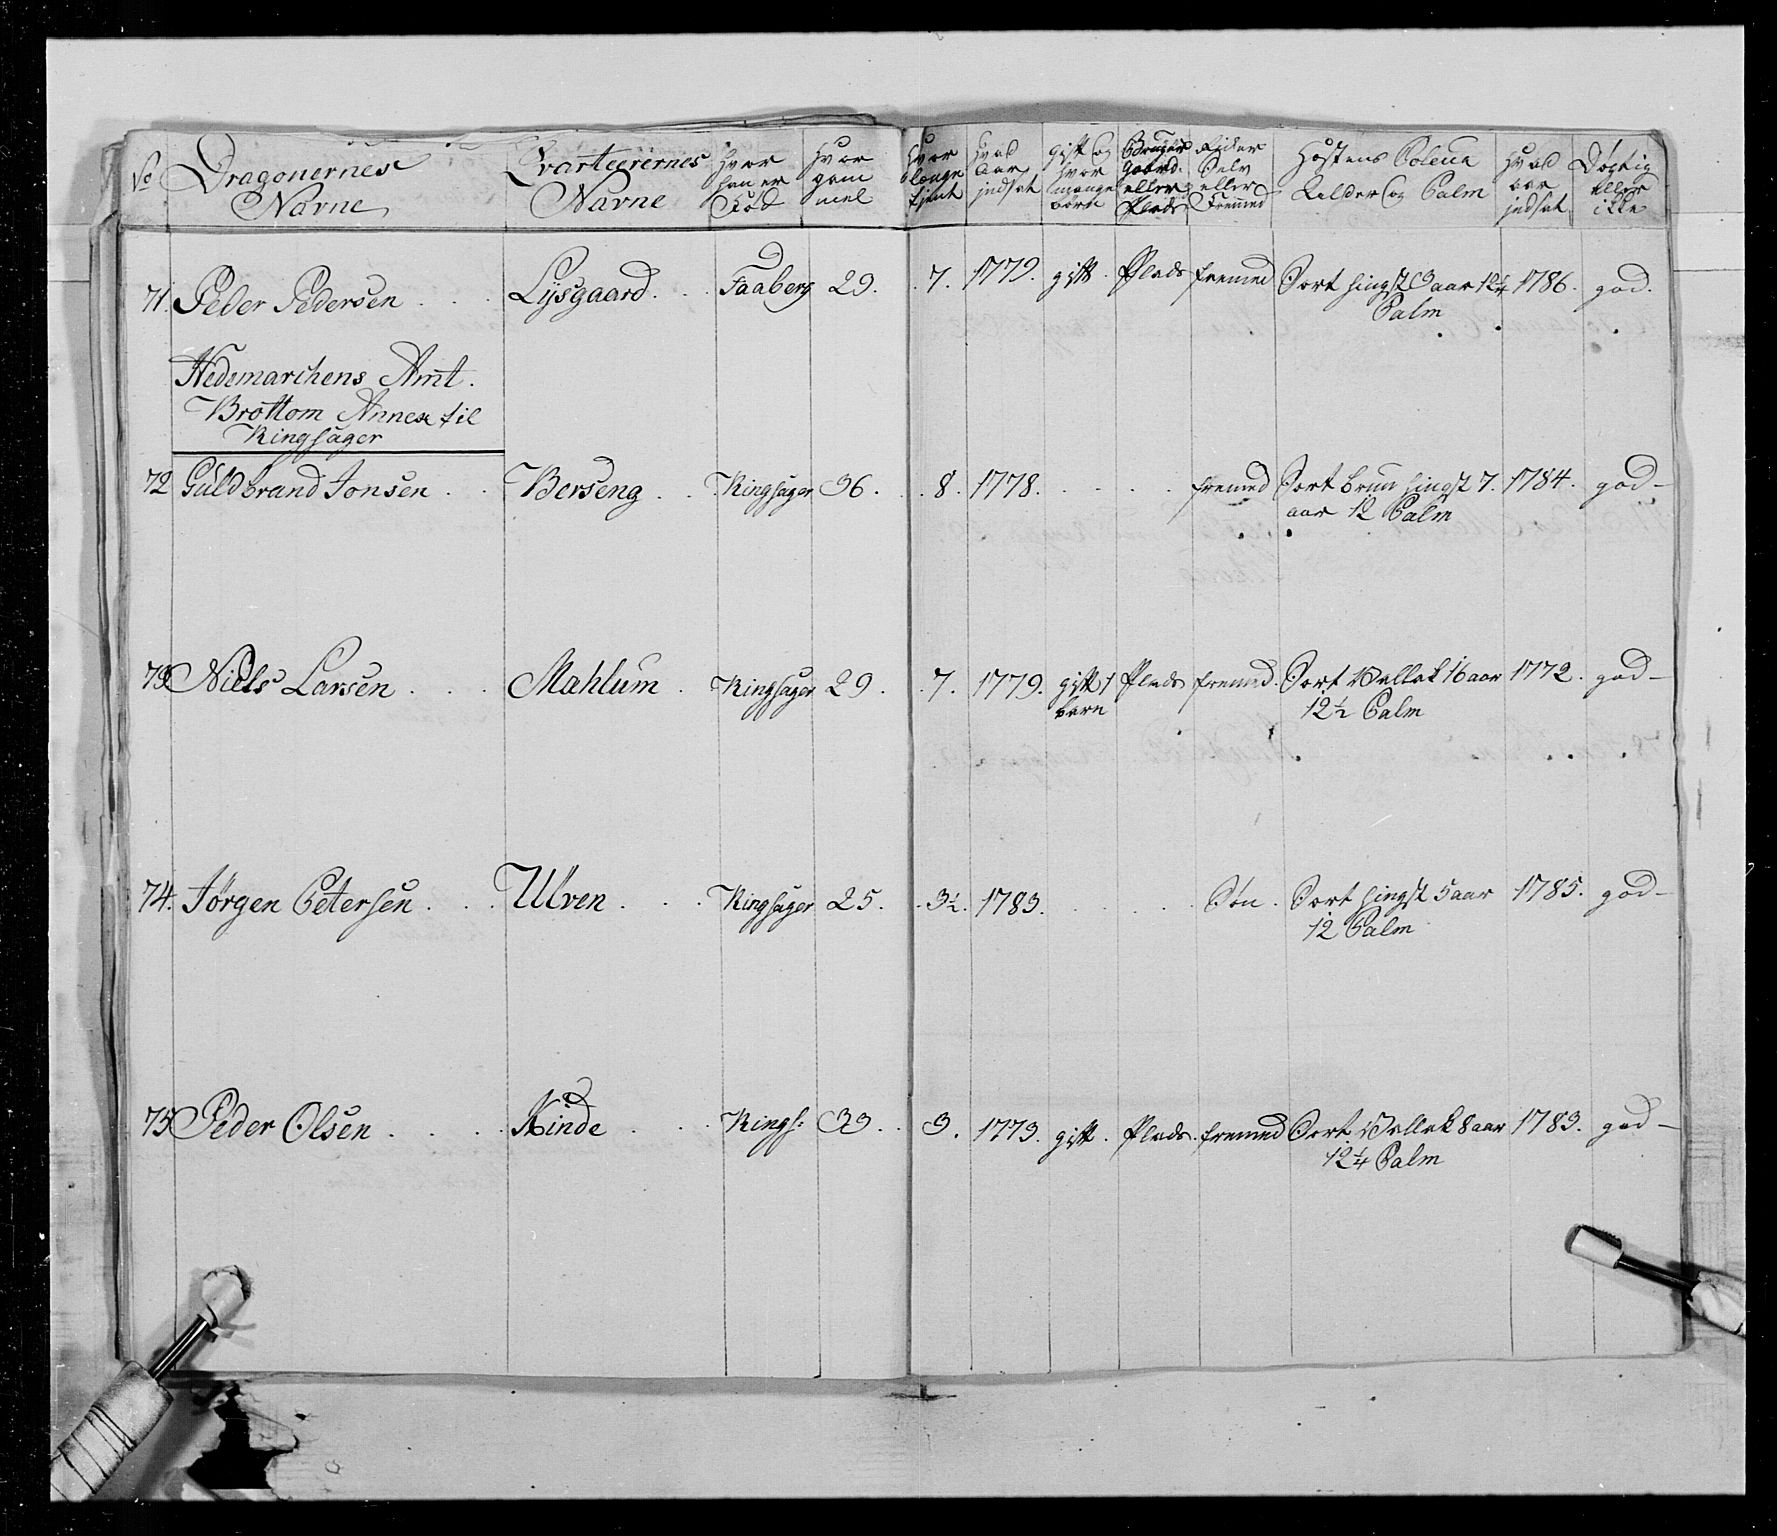 No Dragonernes Navne | Qvarteerernes Navne | Hvor han er Fød | Hvor gam mel | Hvor længe tient | Hvad Aar indsat | gift og hvor mange børn | Bruger Gaard eller Plads | Rider Selv eller Fremmed | Hæstens Coleur Alder og Palm | Hvad aar indsat | Dygtig eller ikke
71. Peder Pedersen . . . Lÿsgaard . . . Faaberg 29. . 7. 1779. gift . Plads fremed Sort hingst 9 aar 12¼ 1786. god.
Palm
Hedemarchens Amt.
Brøttom Annex til
Ringsager
72 Guldbrand Jonsen . . Berseng . . Ringsager 36 . . . 8 . 1778. . . . . fremed Sort brun hingst 7. 1784. god –
aar 12 Palm
73 Niels Larsen . . . Mahlum . Ringsager 29 . . 7. 1779. gift 1 Plads fremed. Sort Vallak 16 aar 1772. god –
barn 12½ Palm
74. Jørgen Petersen . . . Ulven . . . Ringsager 25 . . 3½. 1783. . . . . Søn . Sort hingst 5 aar 1785. god –
12 Palm
75 Peder Olsen . . . . Kinde . . . Rings: 33 . . 9. 1773. gift . Plads. fremed Sort Vallak 8 aar 1783. god –
12¼ Palm